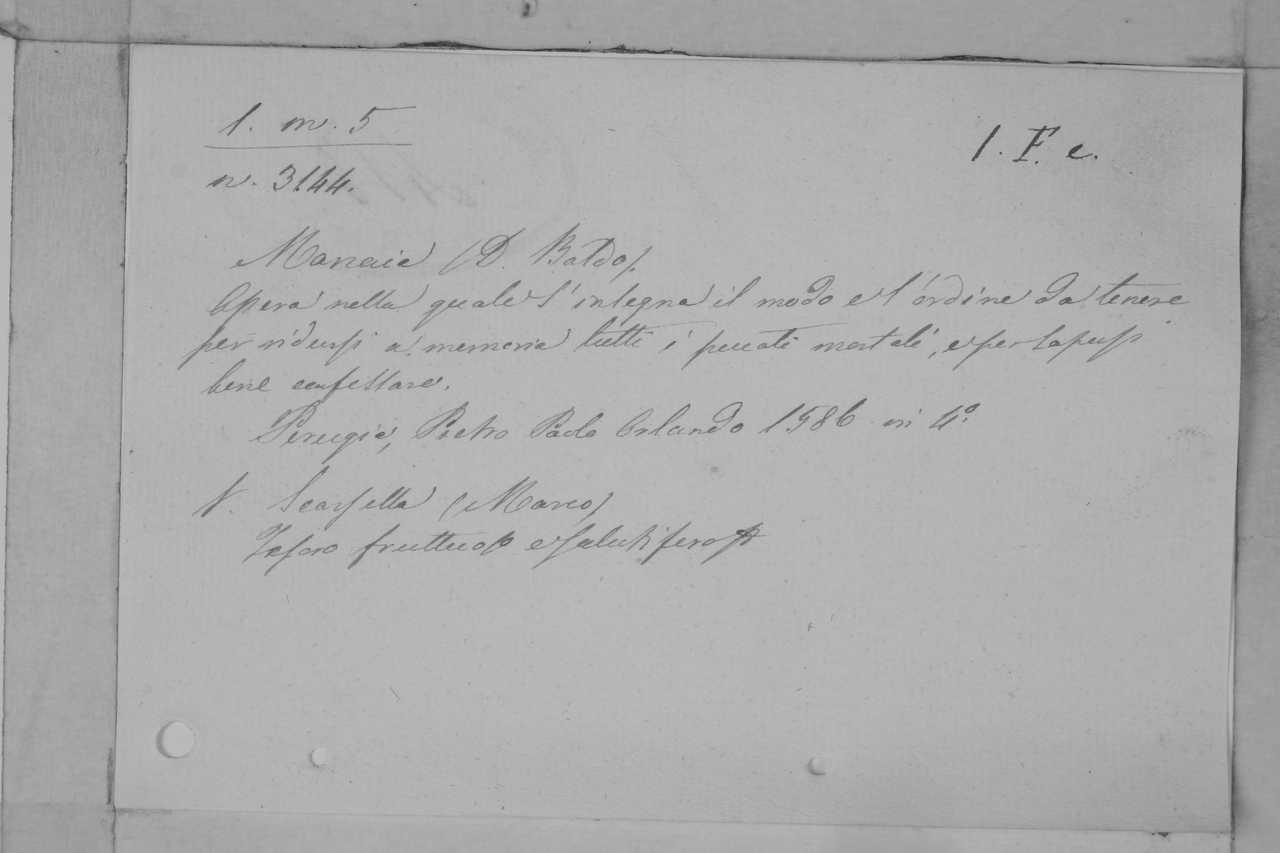 1. m. 5
1. F. e.
n. 3144.
(D. Baldo).
Opera nella quale s'insegna il modo e l'ordine da tenere
per ridursi a memoria tutti i peccati mortali, e per sapersi
bene confessare.
Perugia, Pietro Paolo Orlando 1586 in 4º.
V. Scarsella (Marco)
Tesoro fruttuoso e salutifero